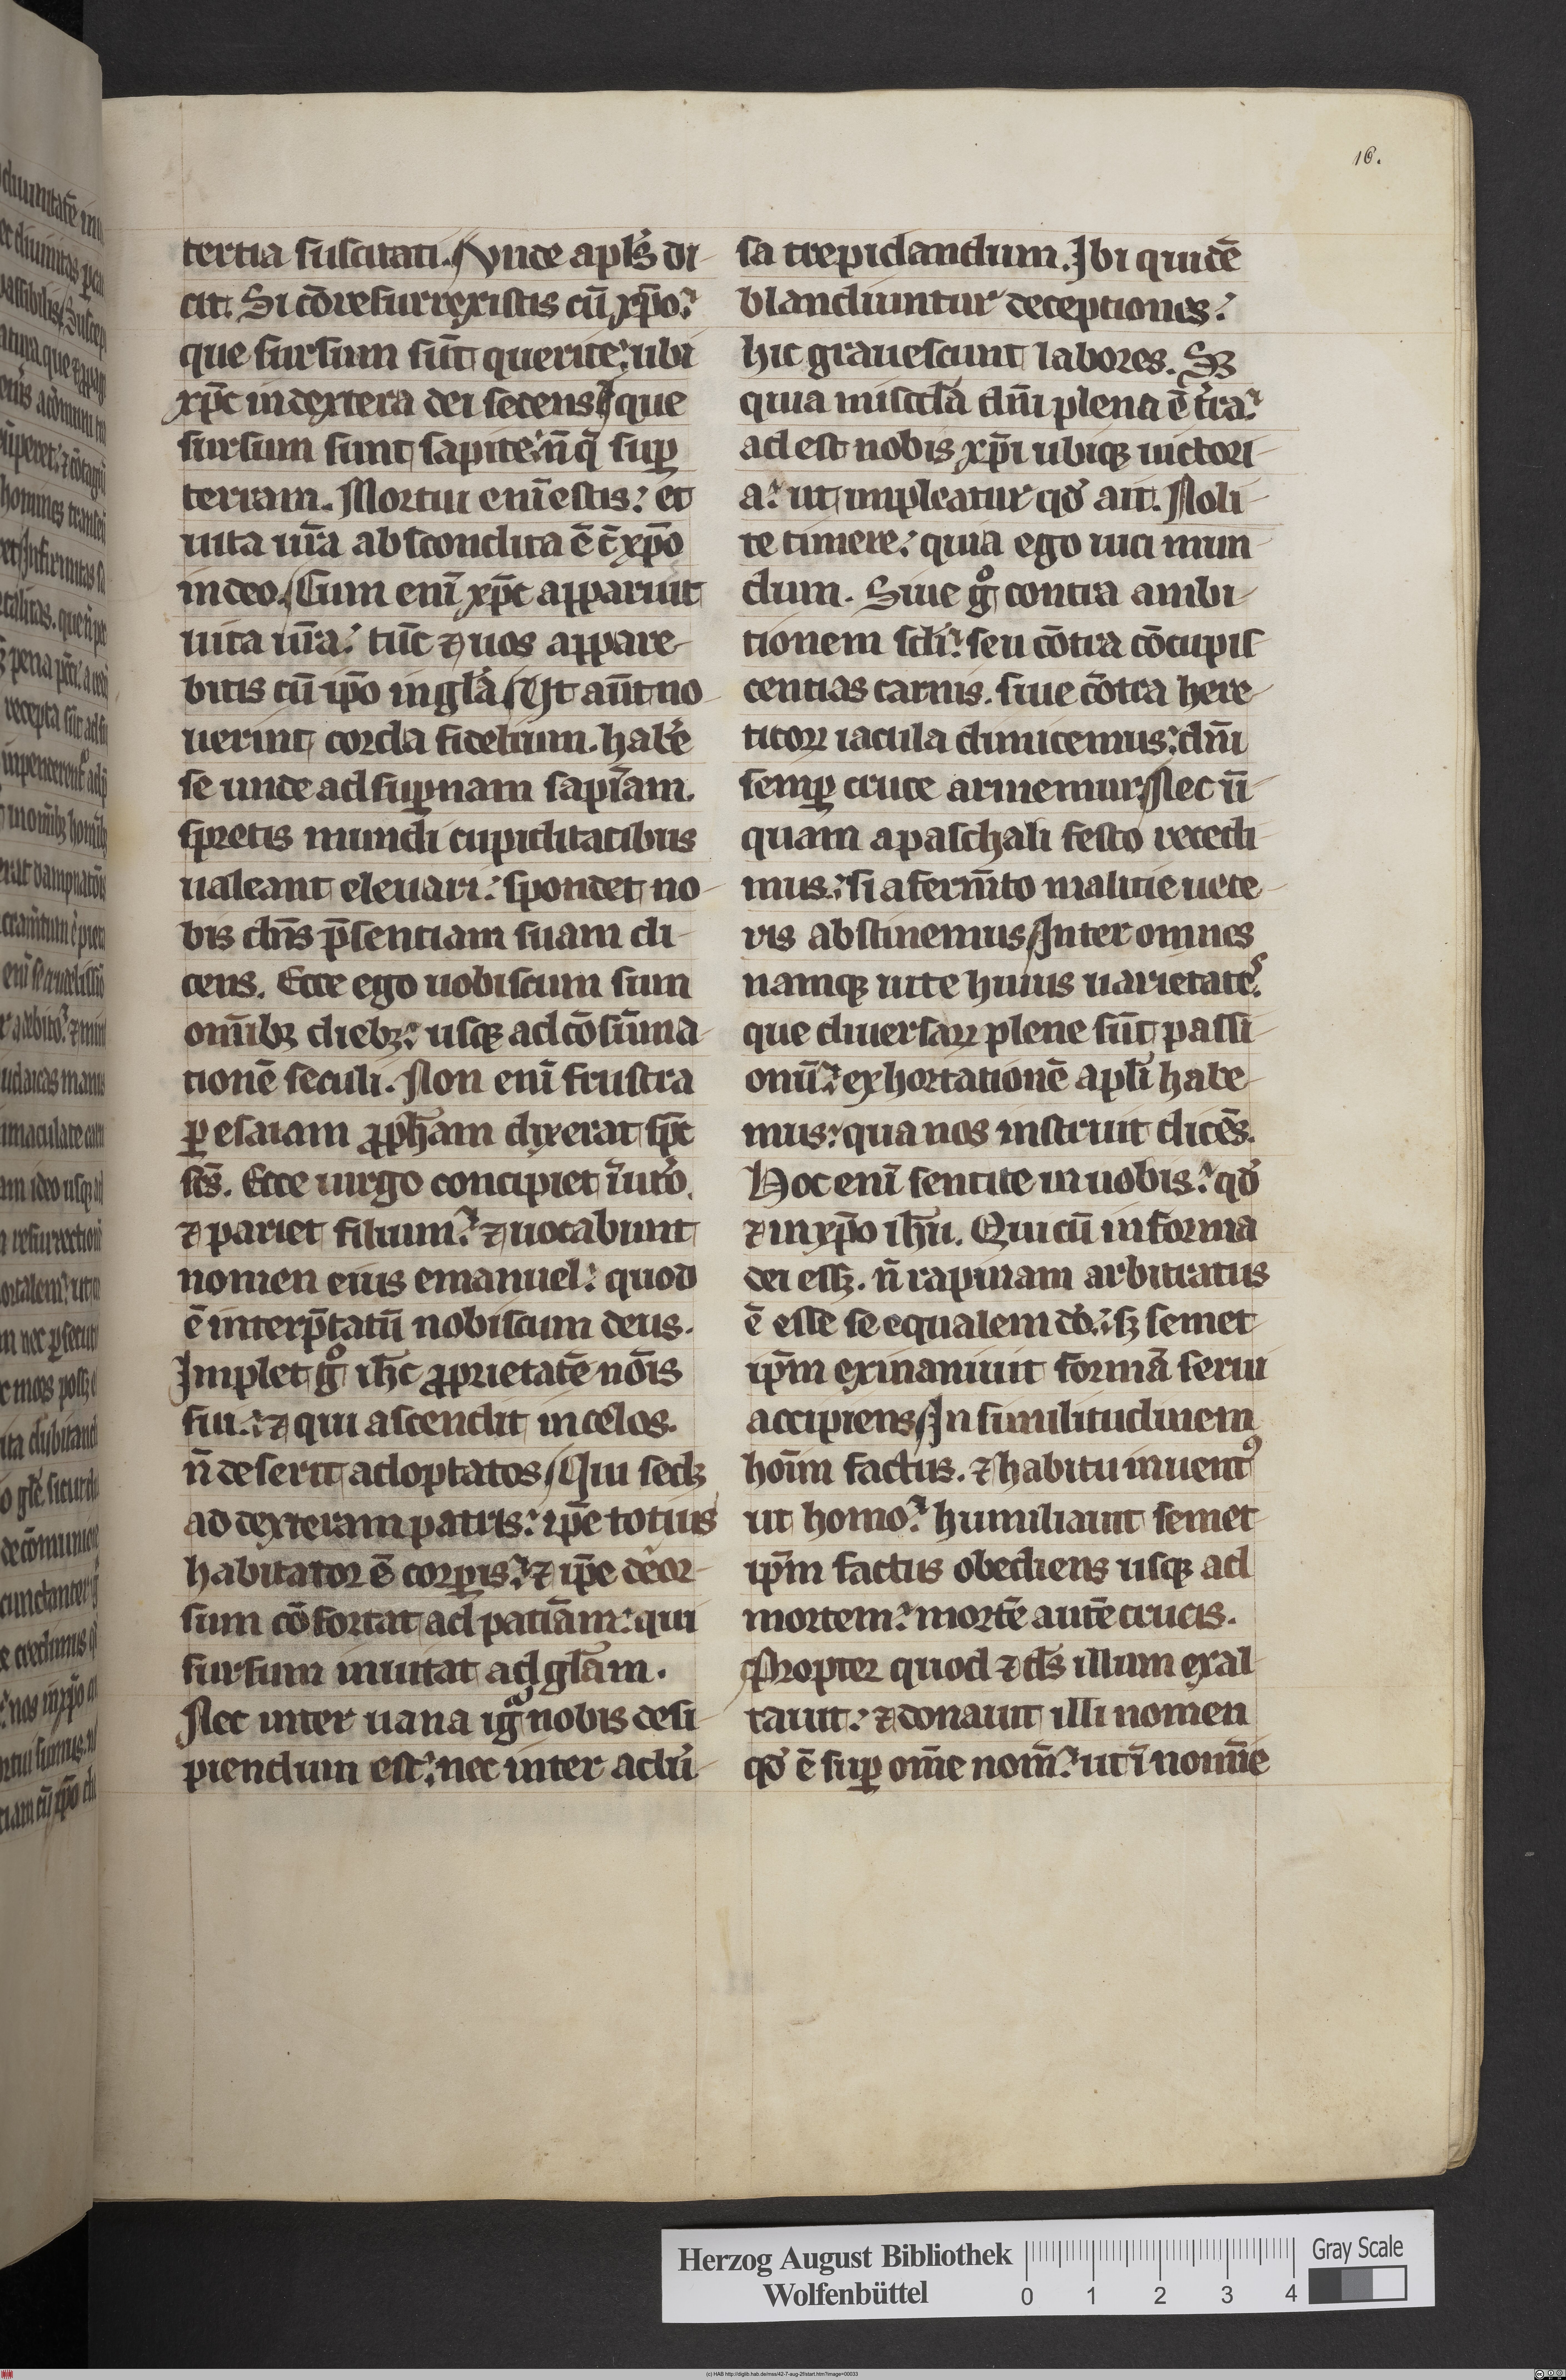 16.
tertia suscitati. Vnde apl's di
cit. Si cōresurrexistis cū xp̄o:
que sursum sūt querite: ubi
xp̄c in dextera dei sedens. que
sursum sunt sapite: n̄ q̄ sup̱
terram. Mortui enī estis: et
uita ūra abscondita ē c̄ xp̄o
in deo. Cum enī xp̄c apparuit
uita ūra: tūc ⁊ uos appare
bitis cū ip̄o in gl'a. Vt aūt no
uerint corda fidelium. hab'e
se unde ad sup̱nam sapīam.
spretis mundi cupiditatibus
ualeant eleuari: spondet no
bis dn̄s p̄sentiam suam di
cens. Ecce ego uobiscum sum
om̄ibꝫ diebꝫ: usqꝫ ad cōsūma
tionē seculi. Non enī frustra
ꝑ esaiam ꝓph̄am dixerat sp̄c
sc̄s. Ecce uirgo concipiet ī ut'o.
⁊ pariet filium: ⁊ uocabunt
nomen eius emanuel: quod
ē interp̄tatū nobiscum deus.
Implet gͦ ih̄c ꝓprietatē nōis
sui: ⁊ qui ascendit in celos.
n̄ deserit adoptatos. Qui sedꝫ
ad dexteram patris: ip̄e totius
habitator ē corꝑis: ⁊ ip̄e deor
sum cōfortat ad patīam: qui
sursum inuitat ad gl'am.
Nec inter uana igͣ nobis desi
piendum est: nec inter adu'
sa trepidandum. Ibi quidē
blandiuntur deceptiones:
hic grauescunt labores. Sꝫ
quia misc'da dn̄i plena ē t'ra:
adest nobis xp̄i ubiqꝫ uictori
a: ut impleatur qd' ait. Noli
te timere: quia ego uici mun
dum. Siue gͦ contra ambi
tionem scl'i: seu cōtra cōcupis
centias carnis. siue cōtra here
ticoꝝ iacula dimicemus: dn̄i
semꝑ cruce armemur. Nec ū
quam a paschali festo recedi
mus: si a ferm̄to malitie uete
ris abstinemus. Inter omnes
namqꝫ uite huius uarietates:
que diuersaꝝ plene sūt passi
onū: exhortationē apl'i habe
mus: qua nos instruit dicēs.
Hoc enī sentite in uobis: qd'
⁊ in xp̄o ih̄u. Qui cū in forma
dei essꝫ. n̄ rapinam arbitratus
ē esse se equalem dō: sꝫ semet
ip̄m exinaniuit formā serui
accipiens. In similitudinem
hoīm factus. ⁊ habitu inuentꝰ
ut homo: humiliauit semet
ip̄m factus obediens usqꝫ ad
mortem: mortē autē crucis.
Propter quod ⁊ ds̄ illum exal
tauit: ⁊ donauit illi nomen
qd' ē sup̱ om̄e nom̄: ut ī nomīe
Herzog August Bibliothek
Wolfenbüttel
0 1 2 3 4
Gray Scale
(c) HAB http://diglib.hab.de/mss/42-7-aug-2f/start.htm?image=00033